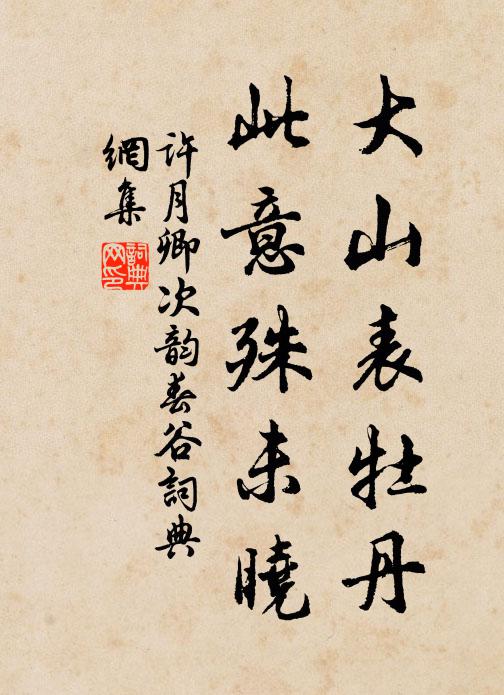 大山表牡丹
此意殊未曉
許月卿次韵春谷詞典
網集
詞典網印